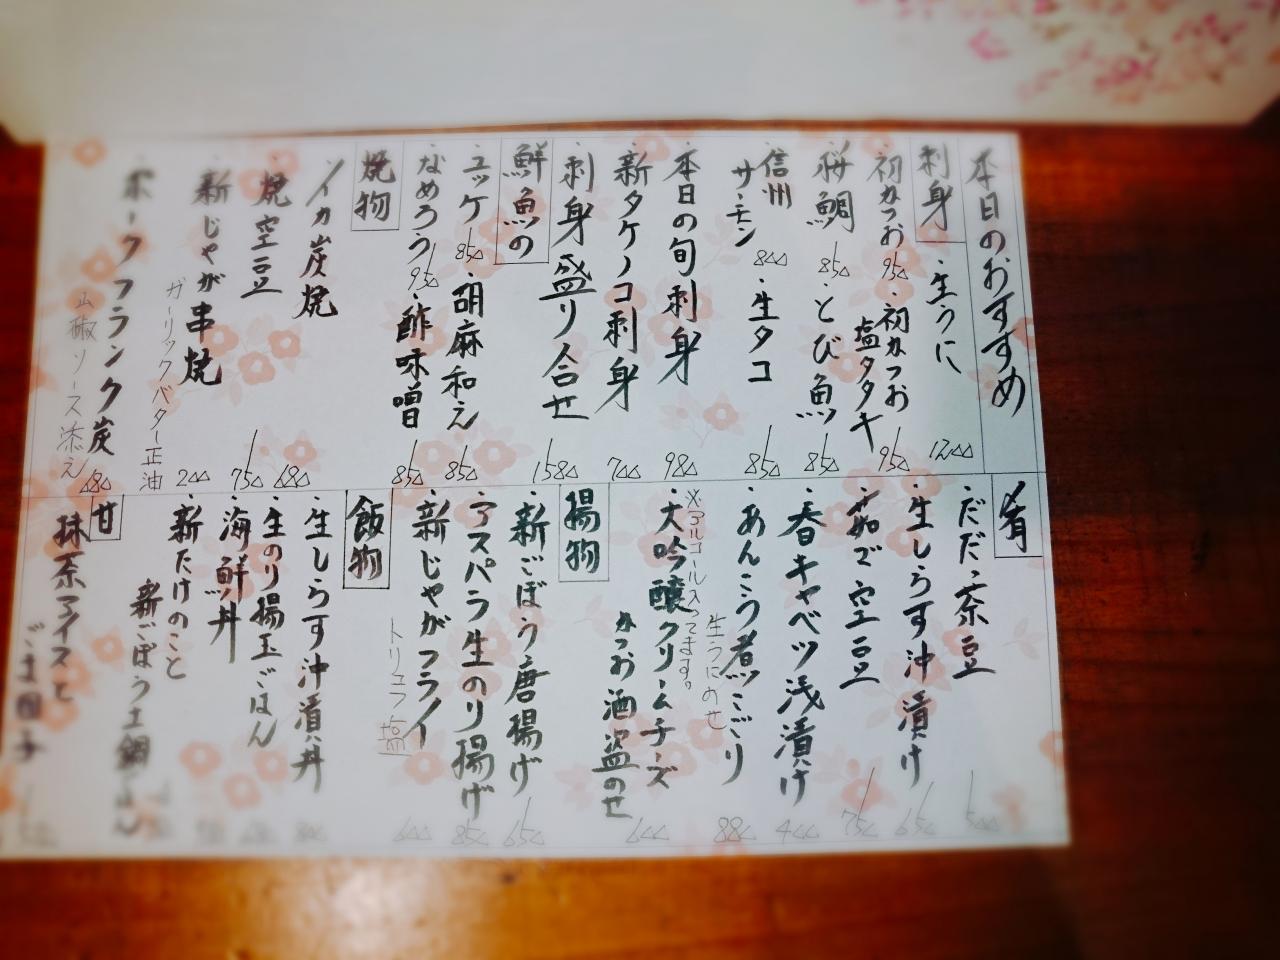 本日のおすすめ
刺身
・生うに 12△△
・初かつお 95△
・初かつお 塩タタキ 95△
・桜鯛 85△
・とび魚 85△
・信州サーモン 8△△
・生タコ 85△
・本日の旬刺身 98△
・新タケノコ刺身 7△△
・刺身盛り合せ 158△
鮮魚の
・ユッケ 85△
・胡麻和え 85△
・なめろう 95△
・酢味噌 85△
焼物
・イカ炭焼 68△
・焼空豆 75△
・新じゃが串焼 2△△
ガーリックバター正油
・ポークフランク炭 48△
山椒ソース添え
肴
・だだ茶豆 5△△
・生しらす沖漬け 65△
・茹で空豆 75△
・春キャベツ浅漬け 4△△
・あんこう煮こごり 88△
生うにのせ
※アルコール入ってます。
・大吟醸クリームチーズ 6△△
かつお酒盗のせ
揚物
・新ごぼう唐揚げ 65△
・アスパラ生のり揚げ 85△
・新じゃがフライ 6△△
トリュフ塩
飯物
・生しらす沖漬丼 8△△
・生のり揚玉ごはん
・海鮮丼
・新たけのこと
新ごぼう土鍋ごはん
甘
・抹茶アイスと
ごま団子